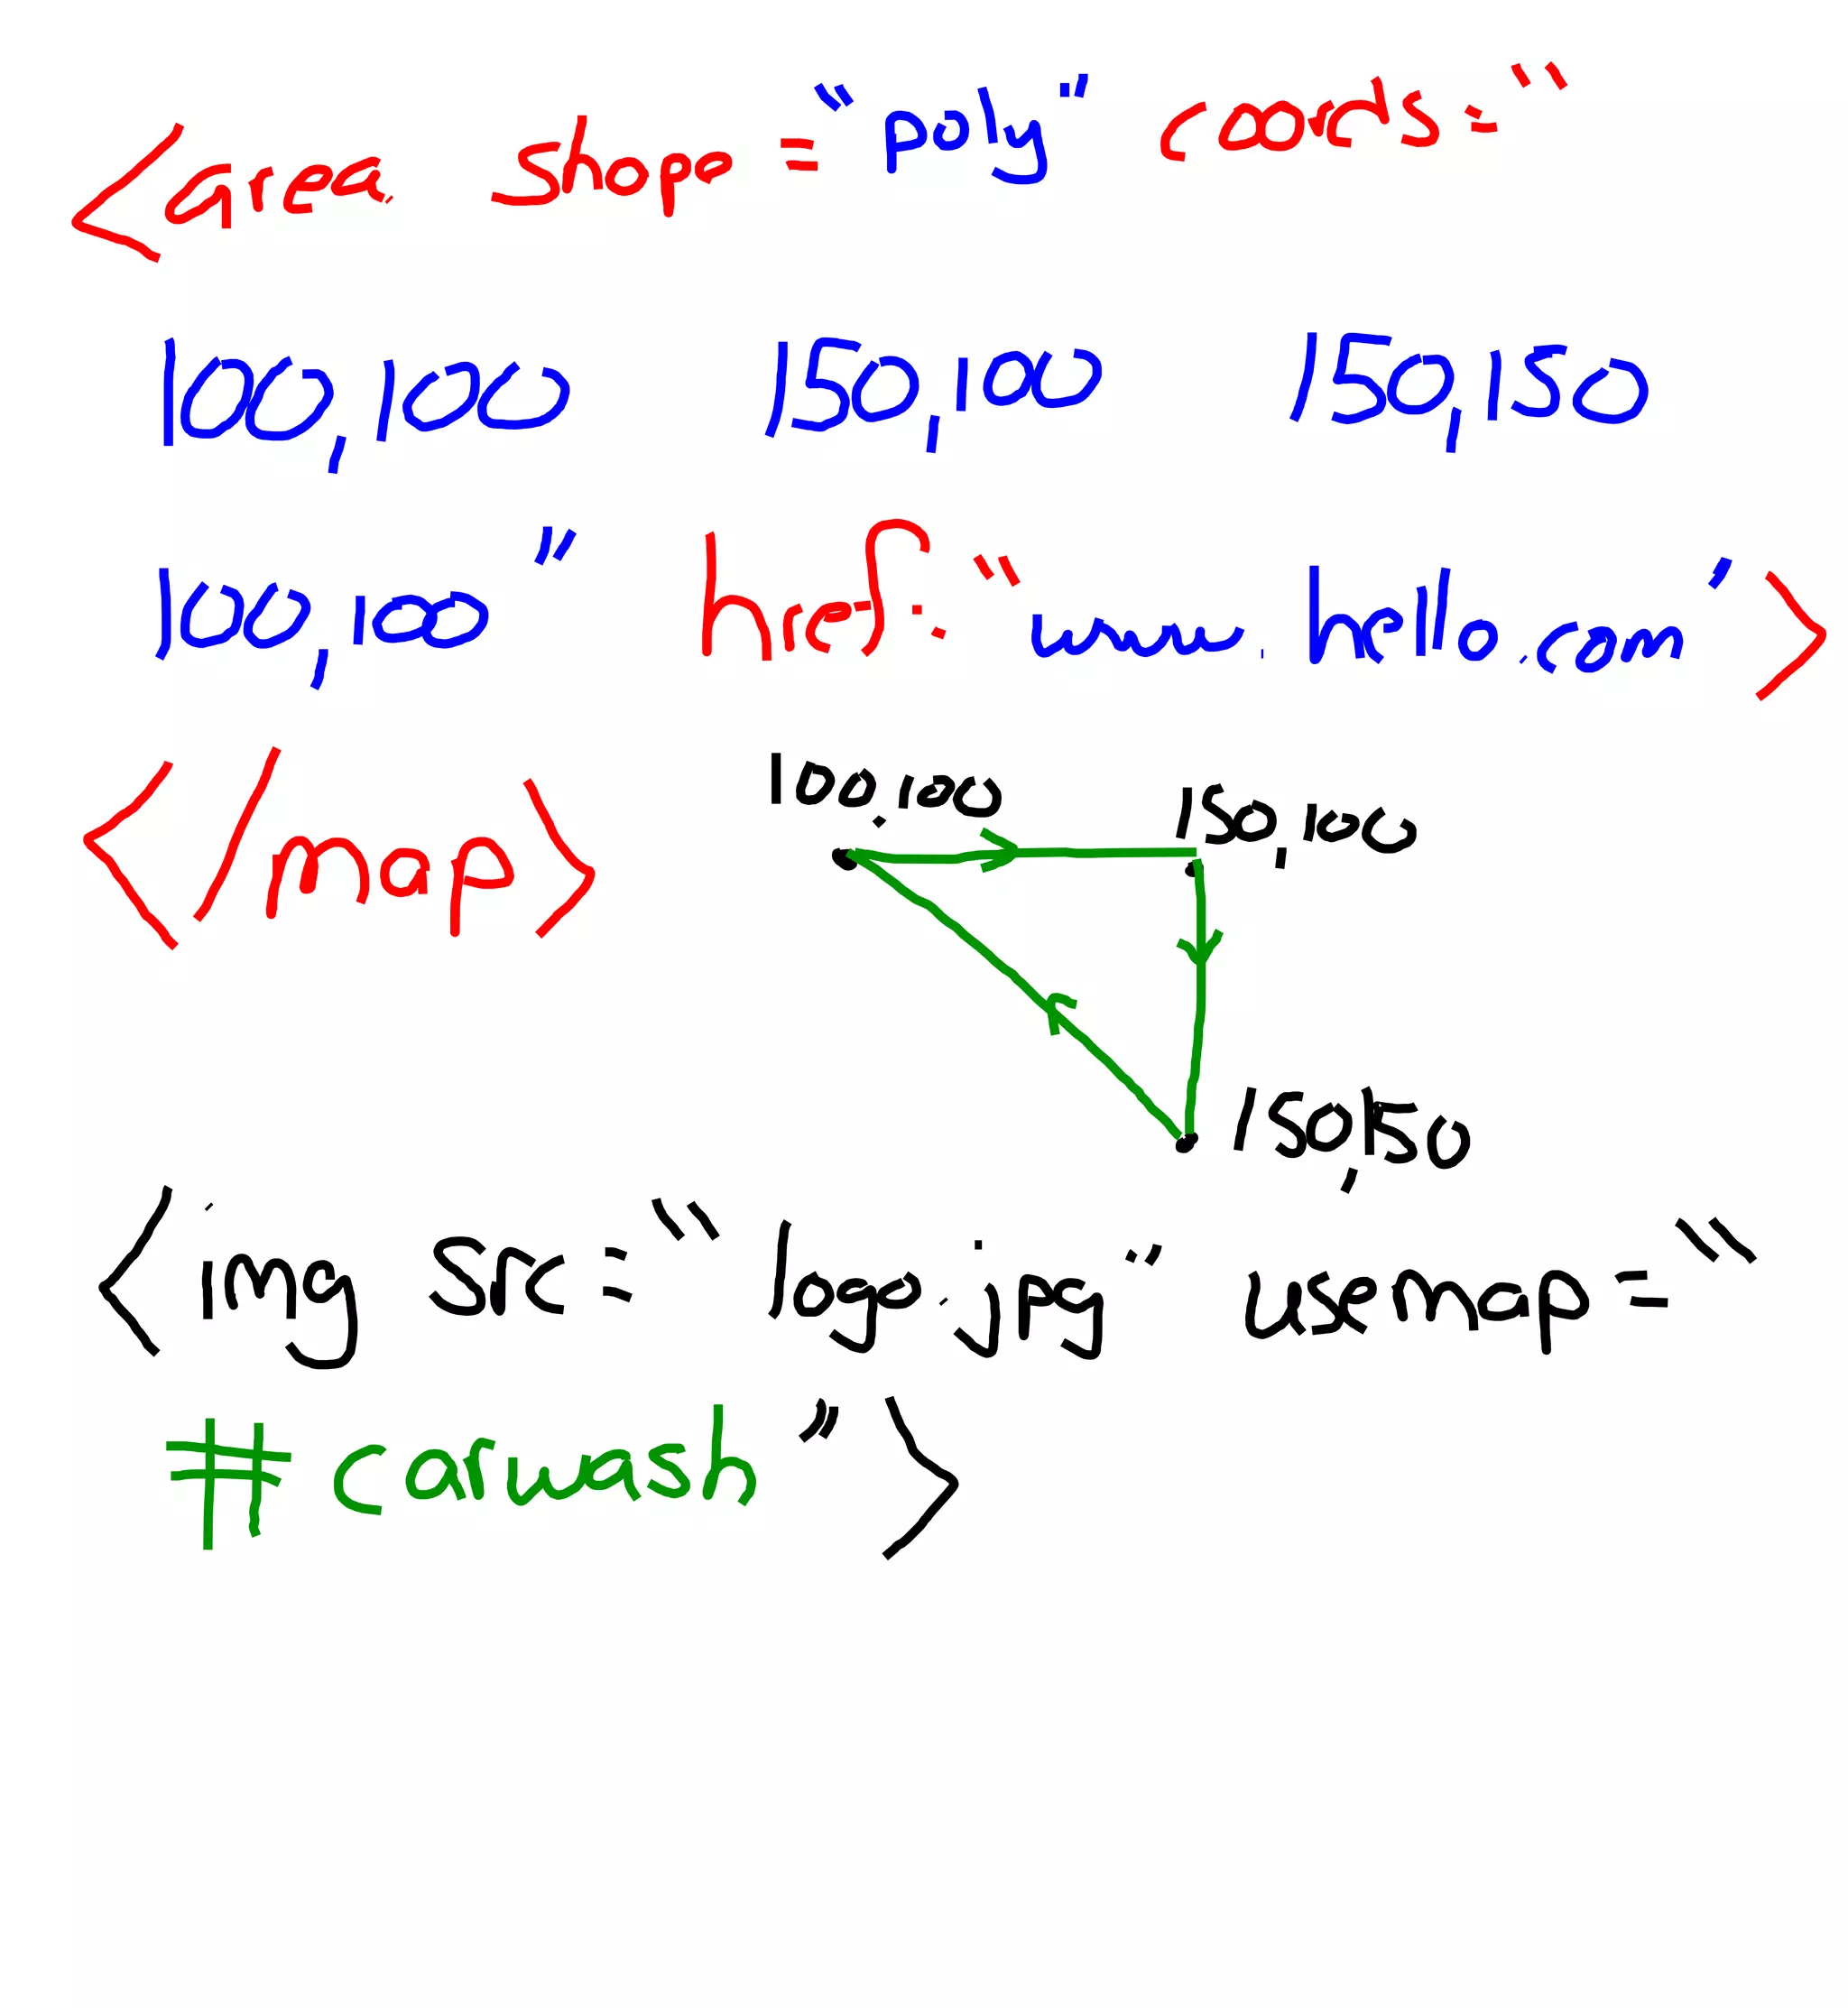 <area shape = "poly" coords = "
100,100 150,100 150,150
100,100" href = "www.hello.com">
</map>
100,100
150,100
150,150
<img src = "logo.jpg" usemap = "
#carwash">